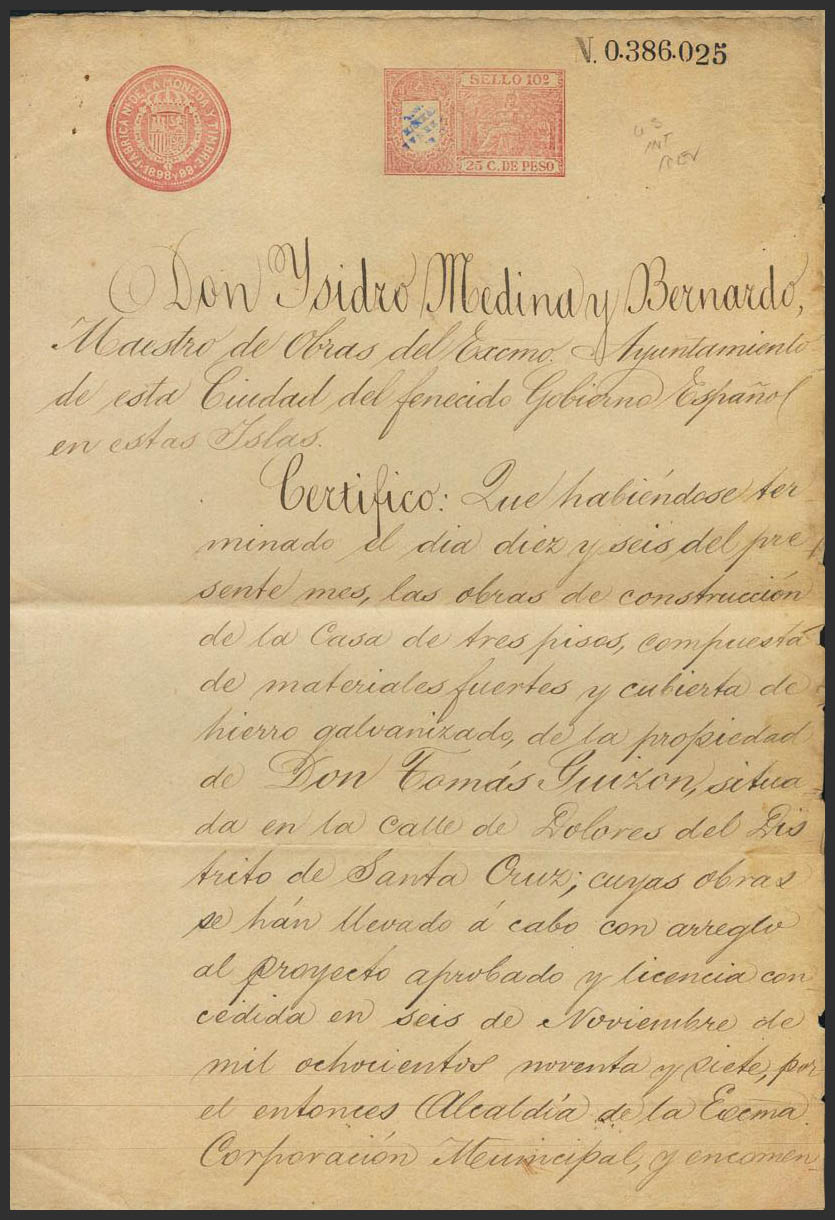 N. 0.386.025
FABRICA Nl. DE LA MONEDA Y TIMBRE
1898 Y 99
SELLO 10º
25 C. DE PESO
US
INT
REV
Don Ysidro Medina y Bernardo,
Maestro de Obras del Excmo. Ayuntamiento
de esta Ciudad del fenecido Gobierno Español
en estas Islas.
Certifico: Que habiéndose ter
minado el dia diez y seis del pre
sente mes, las obras de construcción
de la Casa de tres pisos, compuesta
de materiales fuertes y cubierta de
hierro galvanizado, de la propiedad
de Don Tomás Guizon, situa-
da en la calle de Dolores del Dis
trito de Santa Cruz; cuyas obras
se hán llevado á cabo con arreglo
al proyecto aprobado y licencia con
cedida en seis de Noviembre de
mil ochocientos noventa y siete, por
el entonces Alcaldía de la Excma.
Corporación Municipal, y encomen